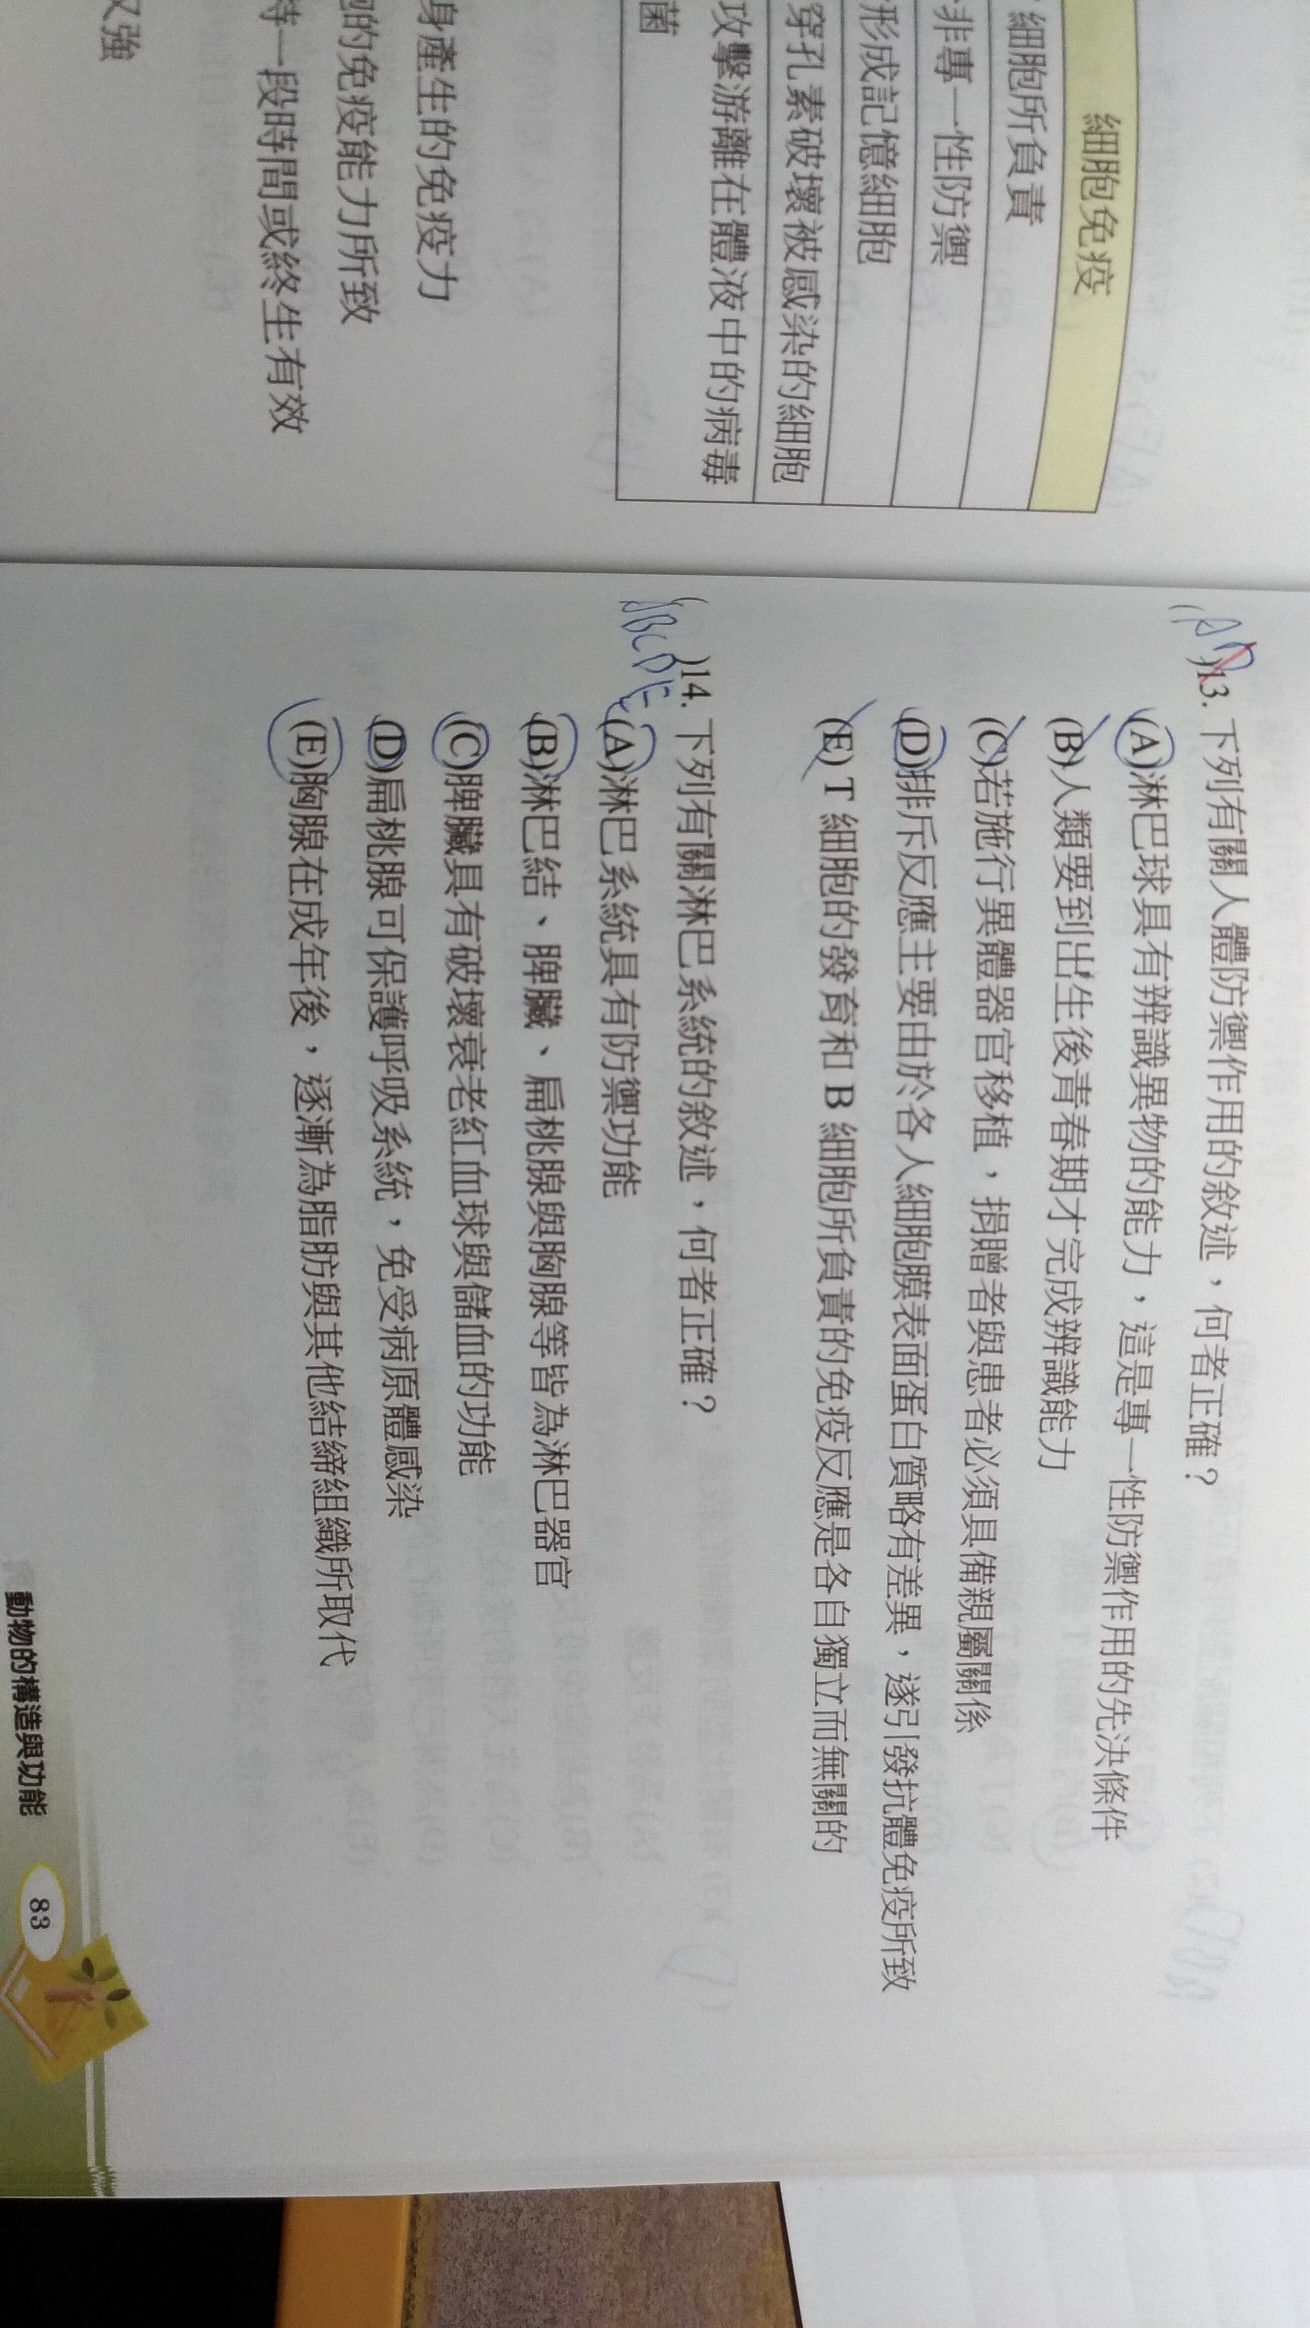 細胞免疫
細胞所負責
非專一性防禦
形成記憶細胞
穿孔素破壞被感染的細胞
攻擊游離在體液中的病毒
菌
身產生的免疫力
的免疫能力所致
等一段時間或終生有效
又強
(AD)13. 下列有關人體防禦作用的敘述，何者正確？
(A)淋巴球具有辨識異物的能力，這是專一性防禦作用的先決條件
(B)人類要到出生後青春期才完成辨識能力
(C)若施行異體器官移植，捐贈者與患者必須具備親屬關係
(D)排斥反應主要由於各人細胞膜表面蛋白質略有差異，遂引發抗體免疫所致
(E) T 細胞的發育和 B 細胞所負責的免疫反應是各自獨立而無關的
ABCDE)14. 下列有關淋巴系統的敘述，何者正確？
(A)淋巴系統具有防禦功能
(B)淋巴結、脾臟、扁桃腺與胸腺等皆為淋巴器官
(C)脾臟具有破壞衰老紅血球與儲血的功能
(D)扁桃腺可保護呼吸系統，免受病原體感染
(E)胸腺在成年後，逐漸為脂肪與其他結締組織所取代
動物的構造與功能 83